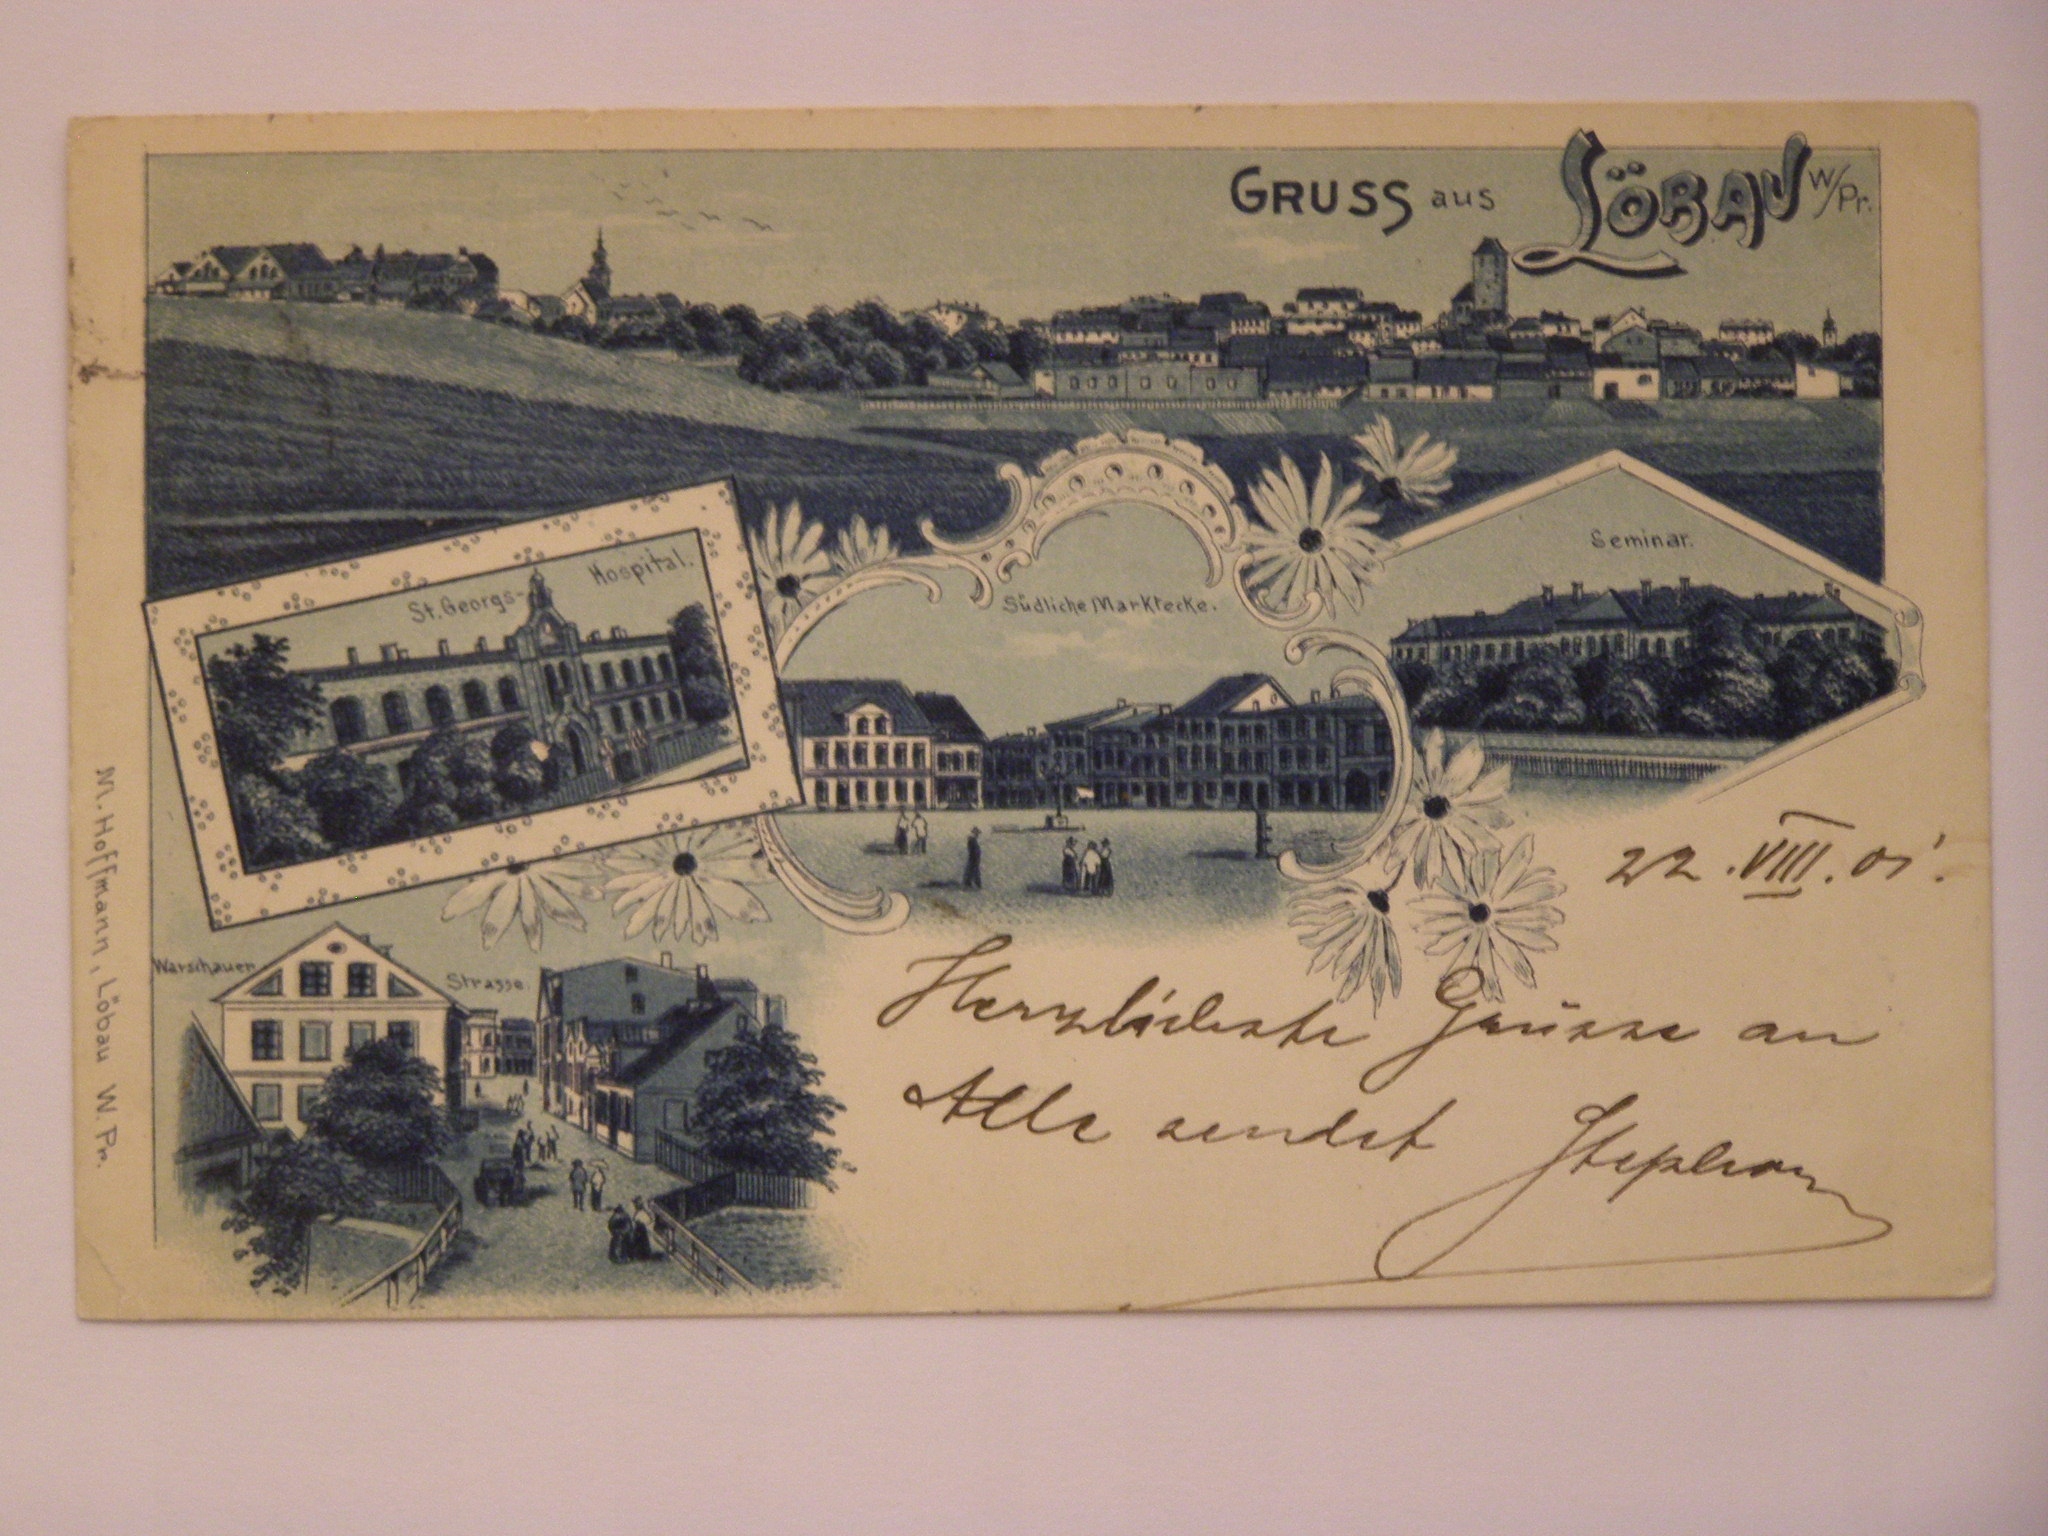 GRUSS aus LÖBAU W/Pr.
St. Georgs-Hospital.
Südliche Marktecke.
Seminar.
Warschauer Strasse.
M. Hoffmann, Löbau W. Pr.
22. VIII. 01.
Herzlichste Grüsse an
Alle sendet Stephan